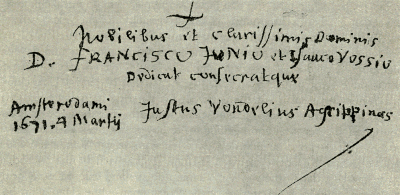 Nobilibus et Clarissimis Dominis
D. FRANCISCO JUNIO et Isaaco VOSSIO
Dedicat consecratque
Amsterodami
1671. 4 Martij
Justus Vondelius Agrippinas